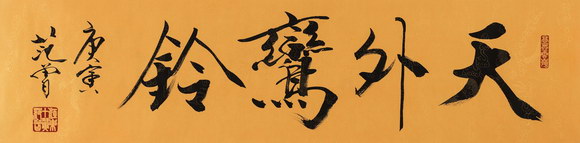 天外鸞鈴
庚寅
范曾